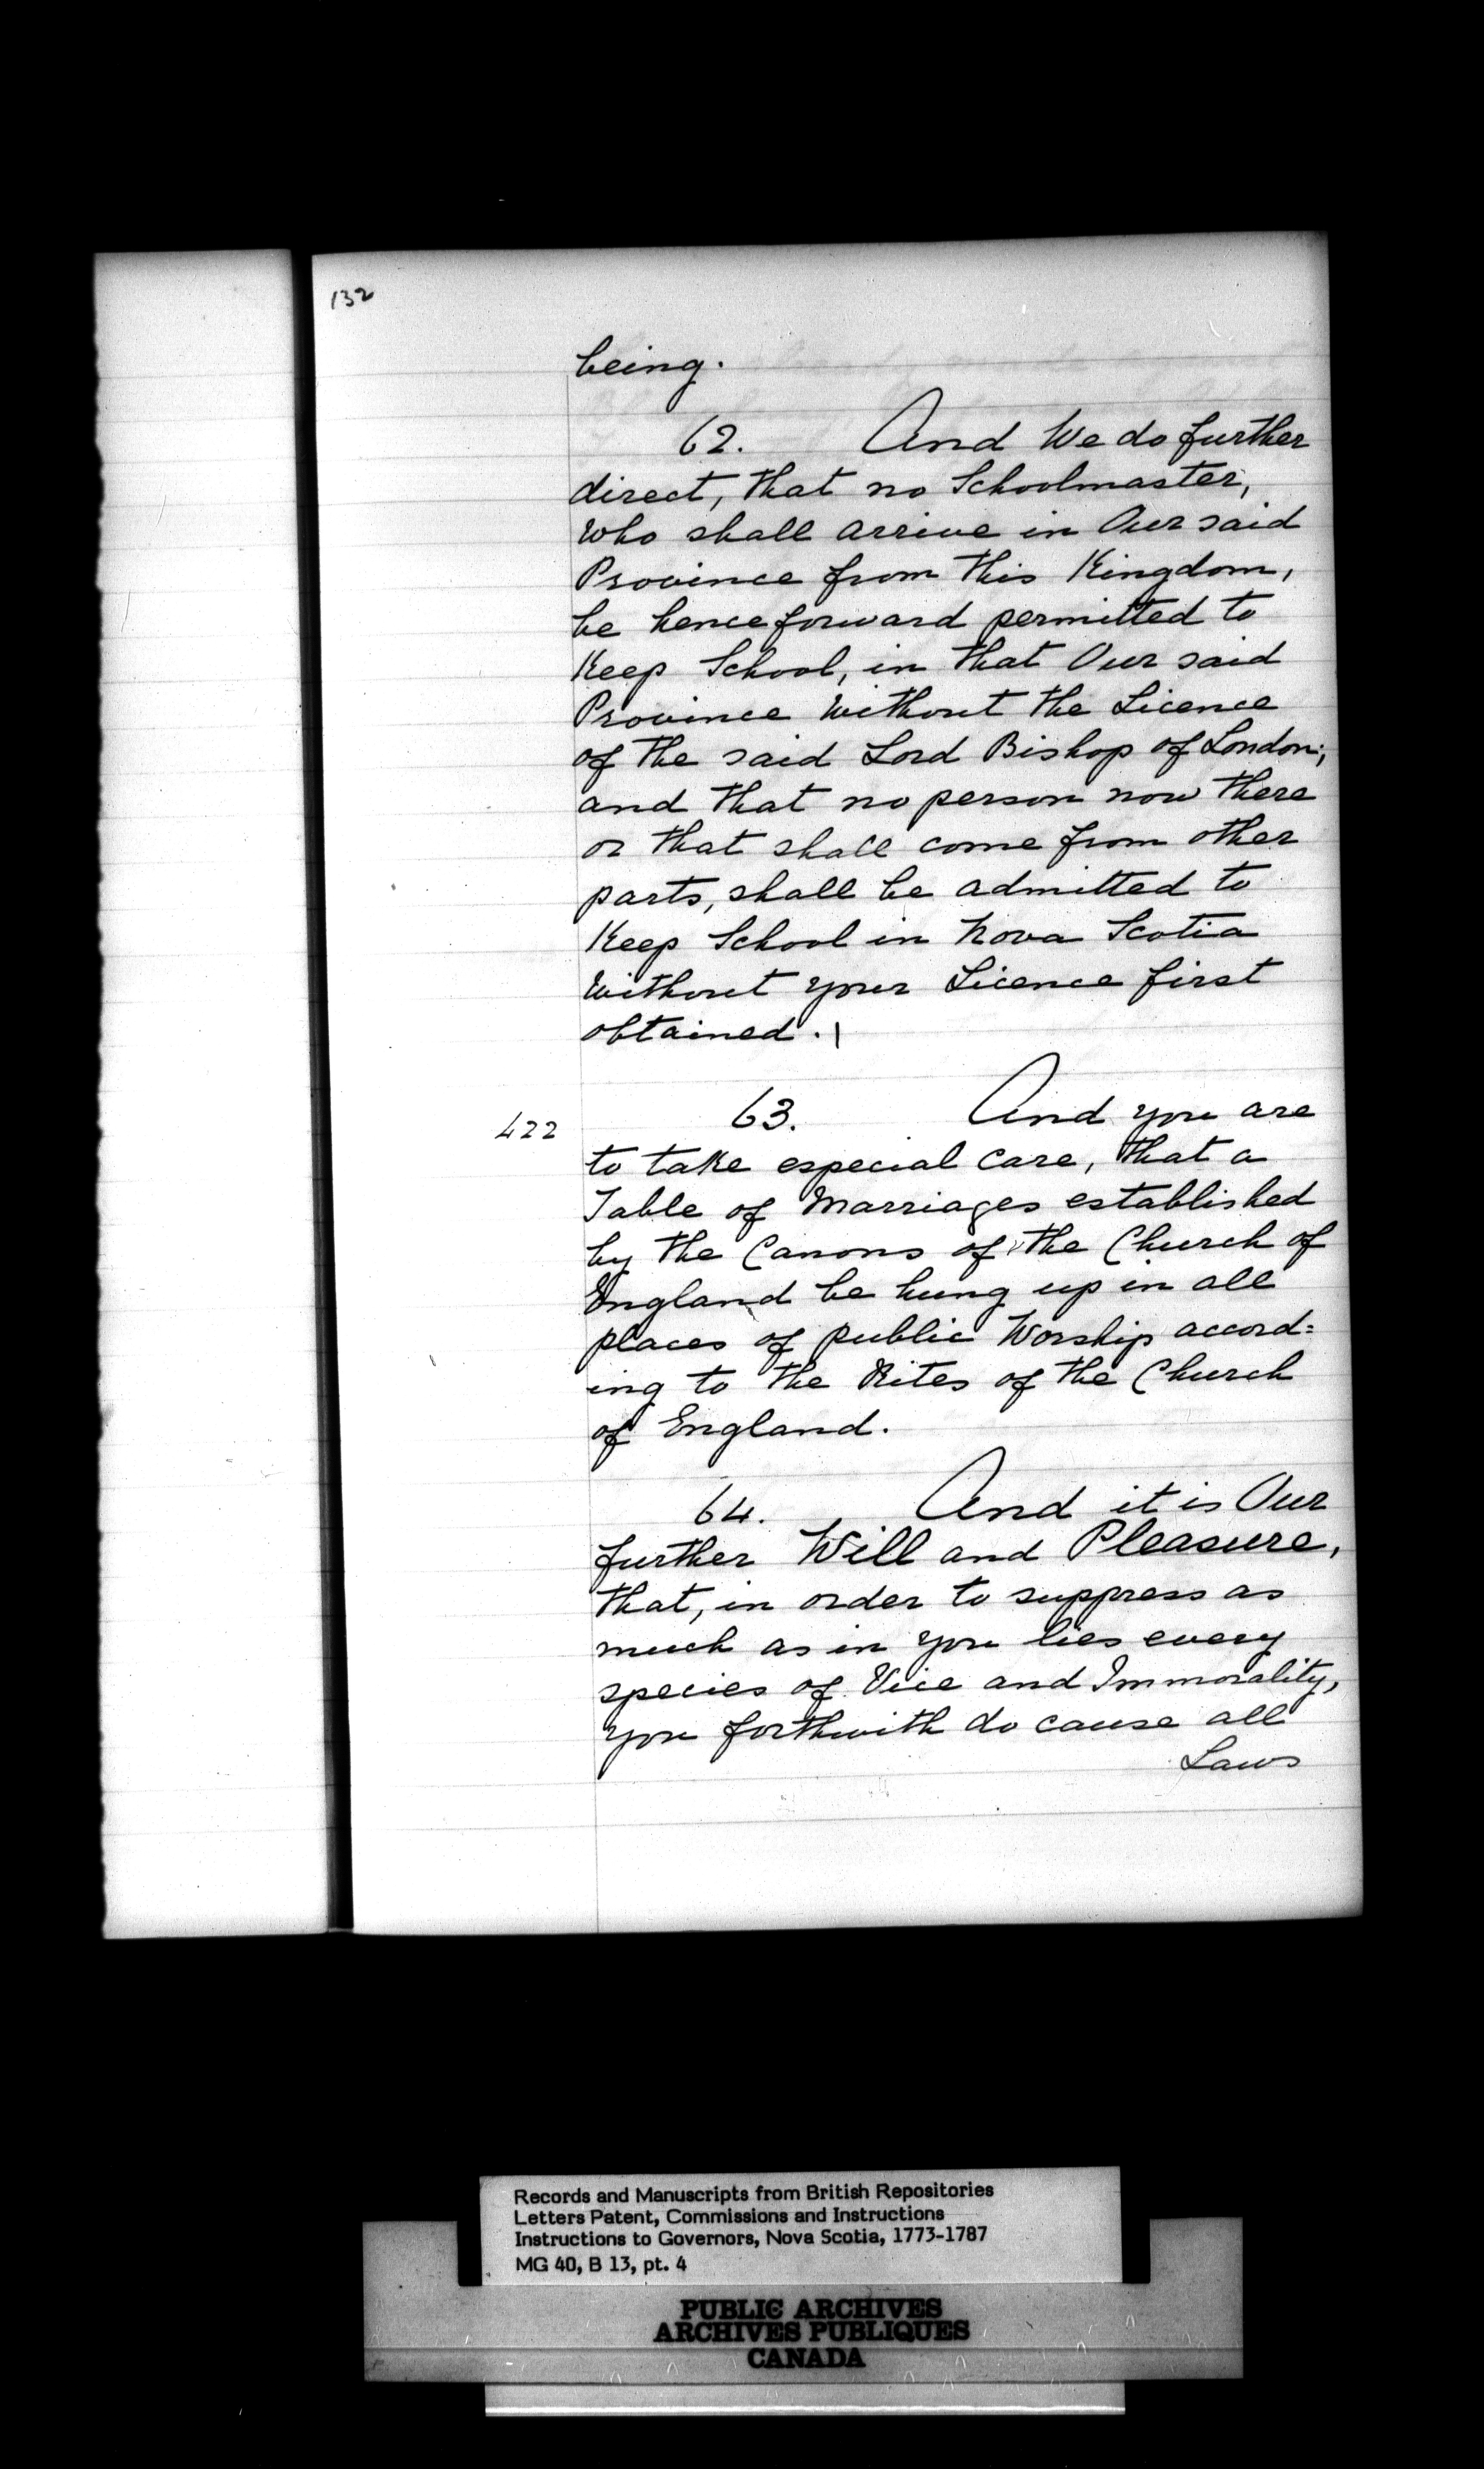 132
being.
62. And We do further
direct, that no Schoolmaster,
who shall arrive in Our said
Province from this Kingdom,
be henceforward permitted to
Keep School, in that Our said
Province without the Licence
of the said Lord Bishop of London;
and that no person now there
or that shall come from other
parts, shall be admitted to
Keep School in Nova Scotia
without your Licence first
obtained.
422 63. And you are
to take especial care, that a
Table of Marriages established
by the Canons of the Church of
England be hung up in all
places of public Worship accord=
ing to the Rites of the Church
of England.
64. And it is Our
further Will and Pleasure,
that, in order to suppress as
much as in you lies every
species of Vice and Immorality,
you forthwith do cause all
Laws
Records and Manuscripts from British Repositories
Letters Patent, Commissions and Instructions
Instructions to Governors, Nova Scotia, 1773-1787
MG 40, B 13, pt. 4
PUBLIC ARCHIVES
ARCHIVES PUBLIQUES
CANADA